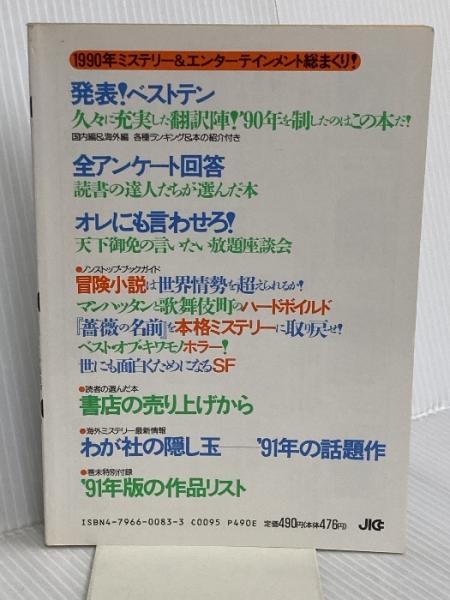 1990年ミステリー&エンターテインメント総まくり!
発表!ベストテン
久々に充実した翻訳陣!'90年を制したのはこの本だ!
国内編&海外編 各種ランキング&本の紹介付き
全アンケート回答
読書の達人たちが選んだ本
オレにも言わせろ!
天下御免の言いたい放題座談会
●ノンストップ・ブックガイド
冒険小説は世界情勢を超えられるか!
マンハッタンと歌舞伎町のハードボイルド
『薔薇の名前』を本格ミステリーに取り戻せ!
ベスト・オブ・キワモノホラー!
世にも面白くためになるSF
●読者の選んだ本
書店の売り上げから
●海外ミステリー最新情報
わが社の隠し玉——'91年の話題作
●巻末特別付録
'91年版の作品リスト
ISBN4-7966-0083-3 C0095 P490E 定価490円(本体476円) JICC